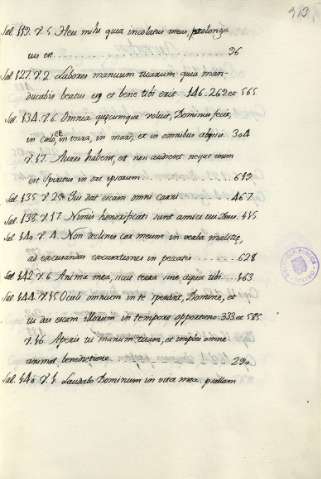 Sal. 119. V. 5. Heu mihi quia incolatus meus prolonga
tus est 36
Sal. 127. V. 2. Labores manuum tuarum quia man-
ducabis beatus es, et bene tibi erit. 146. 262 et 565
Sal. 134. V. 6. Omnia quæcumque voluit, Dominus fecit,
in cœlo, et in terra, in mari, et in omnibus abyssis 304
V. 17. Aures habent, et non audient neque enim
est spiritus in ore ipsorum 619
Sal. 135. V. 25. Qui dat escam omni carni 467
Sal. 138. V. 17. Nimis honorificati sunt amici tui Deus. 415
Sal. 140. V. 4. Non declines cor meum in verba malitiæ,
ad excusandas excusationes in peccatis 628
Sal. 142. V. 6. Anima mea, sicut terra sine aqua tibi. 463
Sal. 144. V. 15. Oculi omnium in te sperant, Domine, et
tu das escam illorum in tempore opportuno. 333 et 585
V. 16. Aperis tu manum tuam, et imples omne
animal benedictione 290
Sal. 145 V. 1. Laudabo Dominum in vita mea, psallam